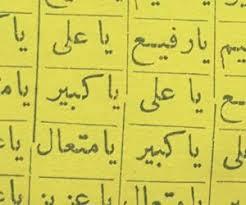 يا رفيع يا على يا
يا على يا كبير
يا كبير يا متعال
يا متعال يا عزيز